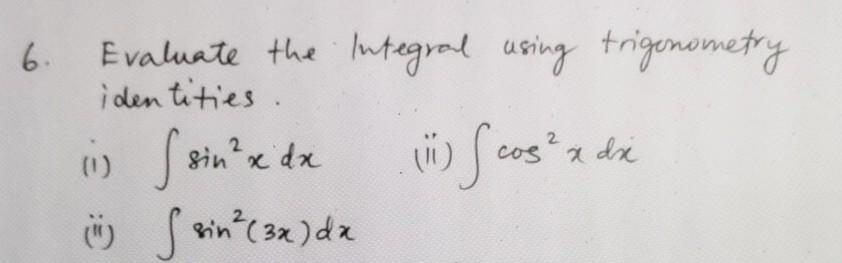 6. Evaluate the Integral using trigonometry
identities.
(i) ∫ sin²x dx (ii) ∫ cos²x dx
(ii) ∫ sin²(3x)dx